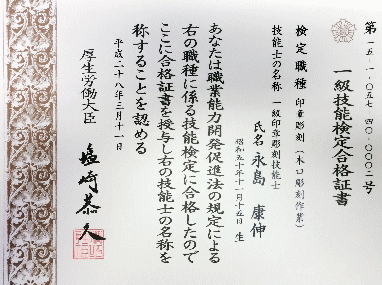 第一五-一-〇五七-四〇-〇〇〇二号
一級技能検定合格証書
検定職種 印章彫刻（木口彫刻作業）
技能士の名称 一級印章彫刻技能士
氏名 永島 康伸
昭和五十年十一月十五日 生
あなたは職業能力開発促進法の規定による
右の職種に係る技能検定に合格したので
ここに合格証書を授与し右の技能士の名称を
称することを認める
平成二十八年三月十一日
厚生労働大臣
塩崎恭久